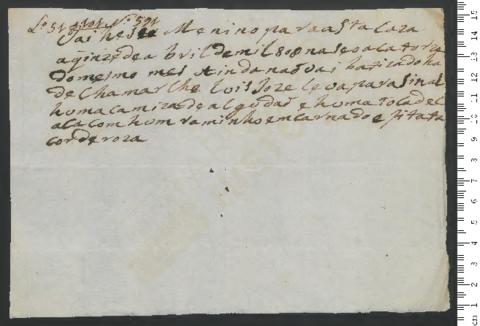 Lº 51 f 201 Nº 591
Vai heste Menino para a Sta Caza
a quinze de a bril de mil 810 naseo a catorze
do mesmo mes ainda nao vai bautizado ha
de Chamarçe Luis Joze leva para sinal
huma camiza de algudaõ e huma toca de c
aca com hum raminho emcarnado e fita
cor de roza